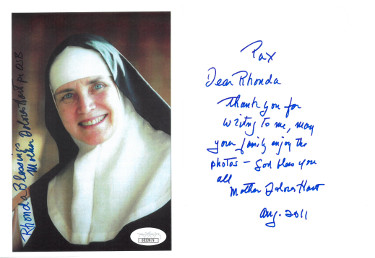 Rhonda Blessings
Mother Dolores Hart
Pax
Dear Rhonda
Thank you for
writing to me, may
your family enjoy the
photos - God bless you
all
Mother Dolores Hart
Aug. 2011